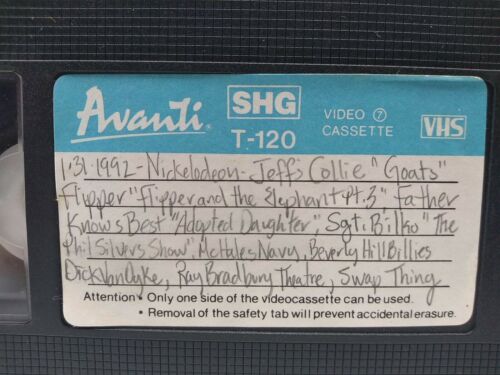 Avanti® SHG VIDEO ⑦
T-120 CASSETTE VHS
1·31·1992 - Nickelodeon - Jeff's Collie "Goats"
Flipper "Flipper and the Elephant pt.3", Father
Knows Best "Adopted Daughter", Sgt. Bilko "The
Phil Silvers Show", McHales Navy, Beverly HillBillies
Dick Van Dyke, Ray Bradbury Theatre, Swap Thing
Attention • Only one side of the videocassette can be used.
• Removal of the safety tab will prevent accidental erasure.